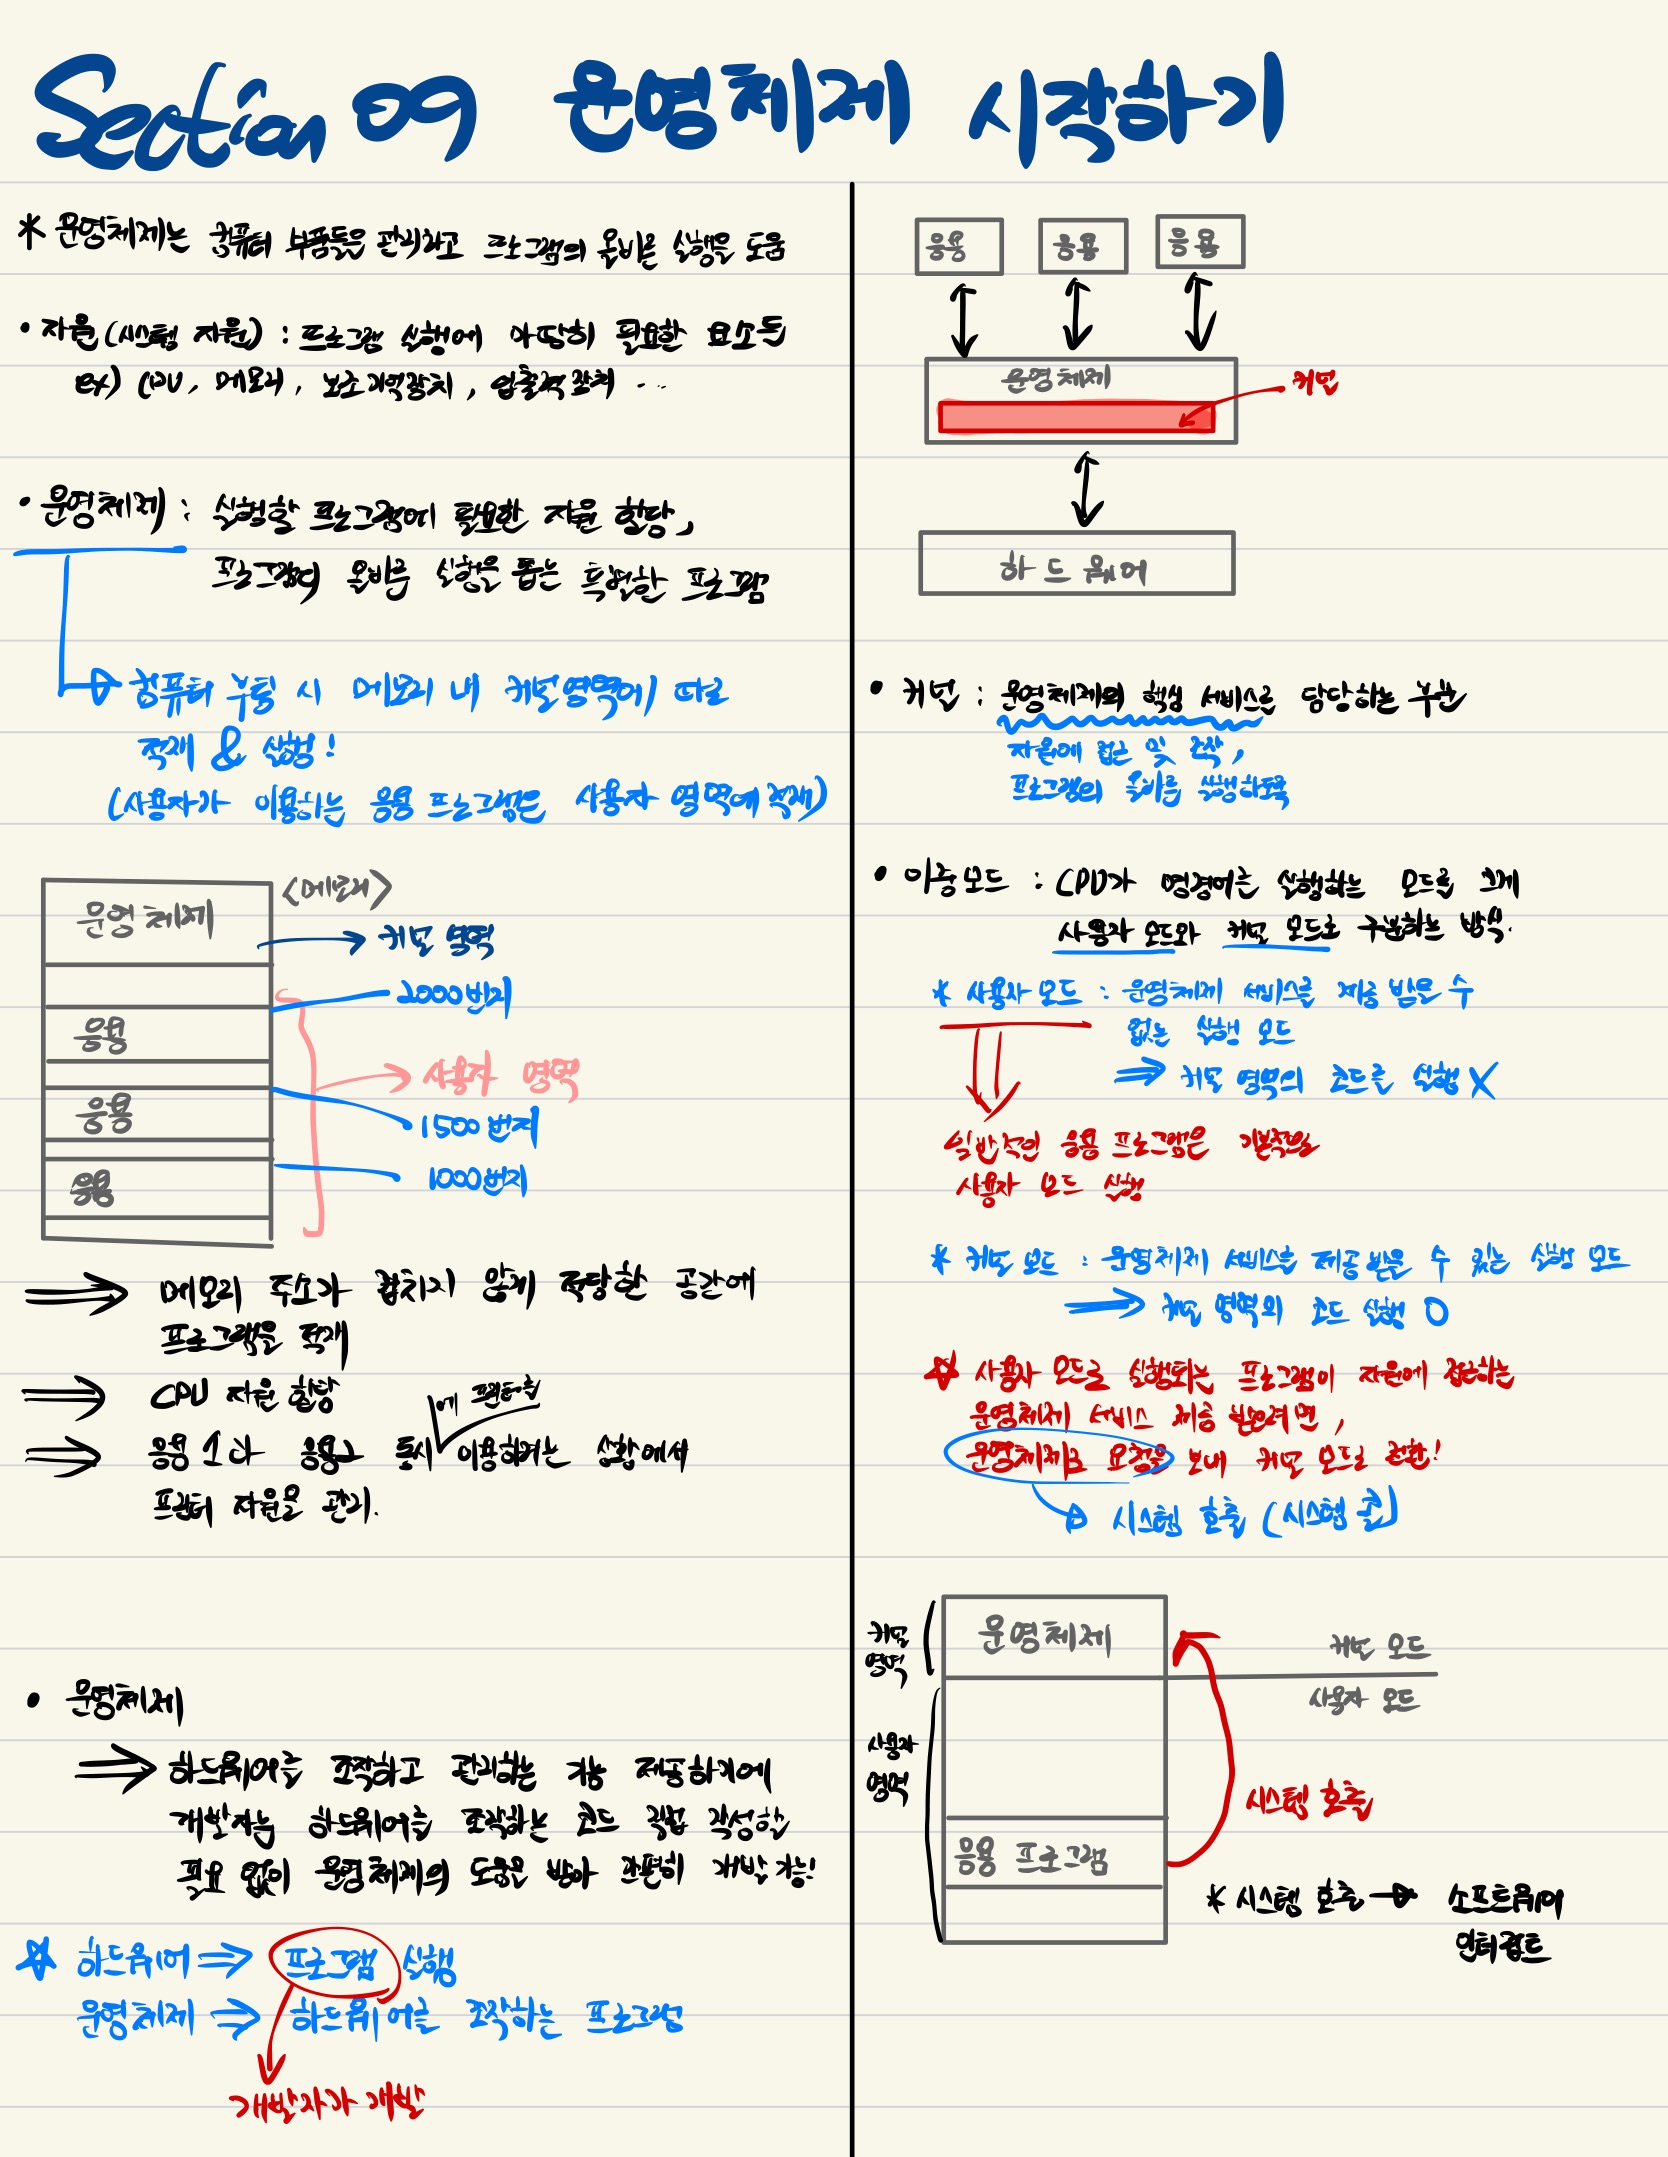 Section 09 운영체제 시작하기
* 운영체제는 컴퓨터 부품들을 관리하고 프로그램의 올바른 실행을 도움
• 자원(시스템 자원) : 프로그램 실행에 마땅히 필요한 요소들
ex) CPU, 메모리, 보조기억장치, 입출력장치 ...
• 운영체제 : 실행할 프로그램에 필요한 자원 할당,
프로그램이 올바르 실행을 돕는 특별한 프로그램
컴퓨터 부팅 시 메모리 내 커널영역에 따로
적재 & 실행!
(사용자가 이용하는 응용 프로그램은 사용자 영역에 적재)
<메모리>
운영체제
커널 영역
2000번지
응용
사용자 영역
응용
1500번지
1000번지
응용
⇒ 메모리 주소가 겹치지 않게 적당한 공간에
프로그램을 적재
⇒ CPU 자원 할당
에 프린터를
⇒ 응용1과 응용2 동시 이용하려는 상황에서
프린터 자원을 관리.
• 운영체제
⇒ 하드웨어를 조작하고 관리하는 기능 제공하기에
개발자는 하드웨어를 조작하는 코드 직접 작성할
필요 없이 운영체제의 도움을 받아 간편히 개발 가능!
☆ 하드웨어 ⇒ 프로그램 실행
운영체제 ⇒ 하드웨어를 조작하는 프로그램
개발자가 개발
응용 응용 응용
운영체제
커널
하드웨어
• 커널 : 운영체제의 핵심 서비스를 담당하는 부분
자원에 접근 및 조작,
프로그램의 올바른 실행하도록
• 이중모드 : CPU가 명령어를 실행하는 모드를 크게
사용자 모드와 커널 모드로 구분하는 방식.
* 사용자 모드 : 운영체제 서비스를 제공 받을 수
없는 실행 모드
⇒ 커널 영역의 코드를 실행 X
일반적인 응용 프로그램은 기본적으로
사용자 모드 실행
* 커널 모드 : 운영체제 서비스를 제공 받을 수 있는 실행 모드
⇒ 커널 영역의 코드 실행 O
☆ 사용자 모드로 실행되는 프로그램이 자원에 접근하는
운영체제 서비스 제공 받으려면,
운영체제로 요청을 보내 커널 모드로 전환!
시스템 호출 (시스템 콜)
커널
영역
운영체제
커널 모드
사용자 모드
사용자
영역
시스템 호출
응용 프로그램
* 시스템 호출 → 소프트웨어
인터럽트